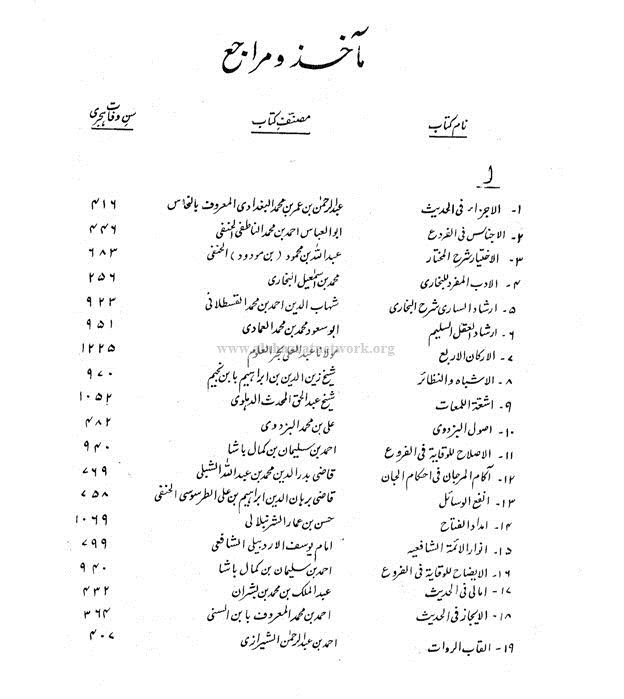 مآخذ و مراجع
نام کتاب مصنف کتاب سن وفات ہجری
ا
۱- الاجزاء فی الحدیث عبدالرحمٰن بن عمر بن محمد البغدادی المعروف بالنحاس ۴۱۶
۲- الاجناس فی الفروع ابوالعباس احمد بن محمد الناطفی الحنفی ۴۴۶
۳- الاختیار شرح المختار عبداللہ بن محمود (بن مودود) الحنفی ۶۸۳
۴- الادب المفرد للبخاری محمد بن اسمٰعیل البخاری ۲۵۶
۵- ارشاد الساری شرح البخاری شہاب الدین احمد بن محمد القسطلانی ۹۲۳
۶- ارشاد العقل السلیم ابوسعود محمد بن محمد العمادی ۹۵۱
۷- الارکان الاربع مولانا عبدالعلی بحرالعلوم ۱۲۲۵
۸- الاشباہ والنظائر شیخ زین الدین بن ابراہیم بابن نجیم ۹۷۰
۹- اشعۃ اللمعات شیخ عبدالحق المحدث الدہلوی ۱۰۵۲
۱۰- اصول البزدوی علی بن محمد البزدوی ۴۸۲
۱۱- الاصلاح للوقایۃ فی الفروع احمد بن سلیمان بن کمال باشا ۹۴۰
۱۲- آکام المرجان فی احکام الجان قاضی بدرالدین محمد بن عبداللہ الشبلی ۷۶۹
۱۳- انفع الوسائل قاضی برہان الدین ابراہیم بن علی الطرسوسی الحنفی ۷۵۸
۱۴- امداد الفتاح حسن بن عمار الشرنبلالی ۱۰۶۹
۱۵- انوار الائمۃ الشافعیہ امام یوسف الاردبیلی الشافعی ۷۹۹
۱۶- الایضاح للوقایۃ فی الفروع احمد بن سلیمان بن کمال باشا ۹۴۰
۱۷- امالی فی الحدیث عبدالملک بن محمد بن بشران ۴۳۲
۱۸- الایجاز فی الحدیث احمد بن محمد المعروف بابن السنی ۳۶۴
۱۹- القاب الروات احمد بن عبدالرحمٰن الشیرازی ۴۰۷